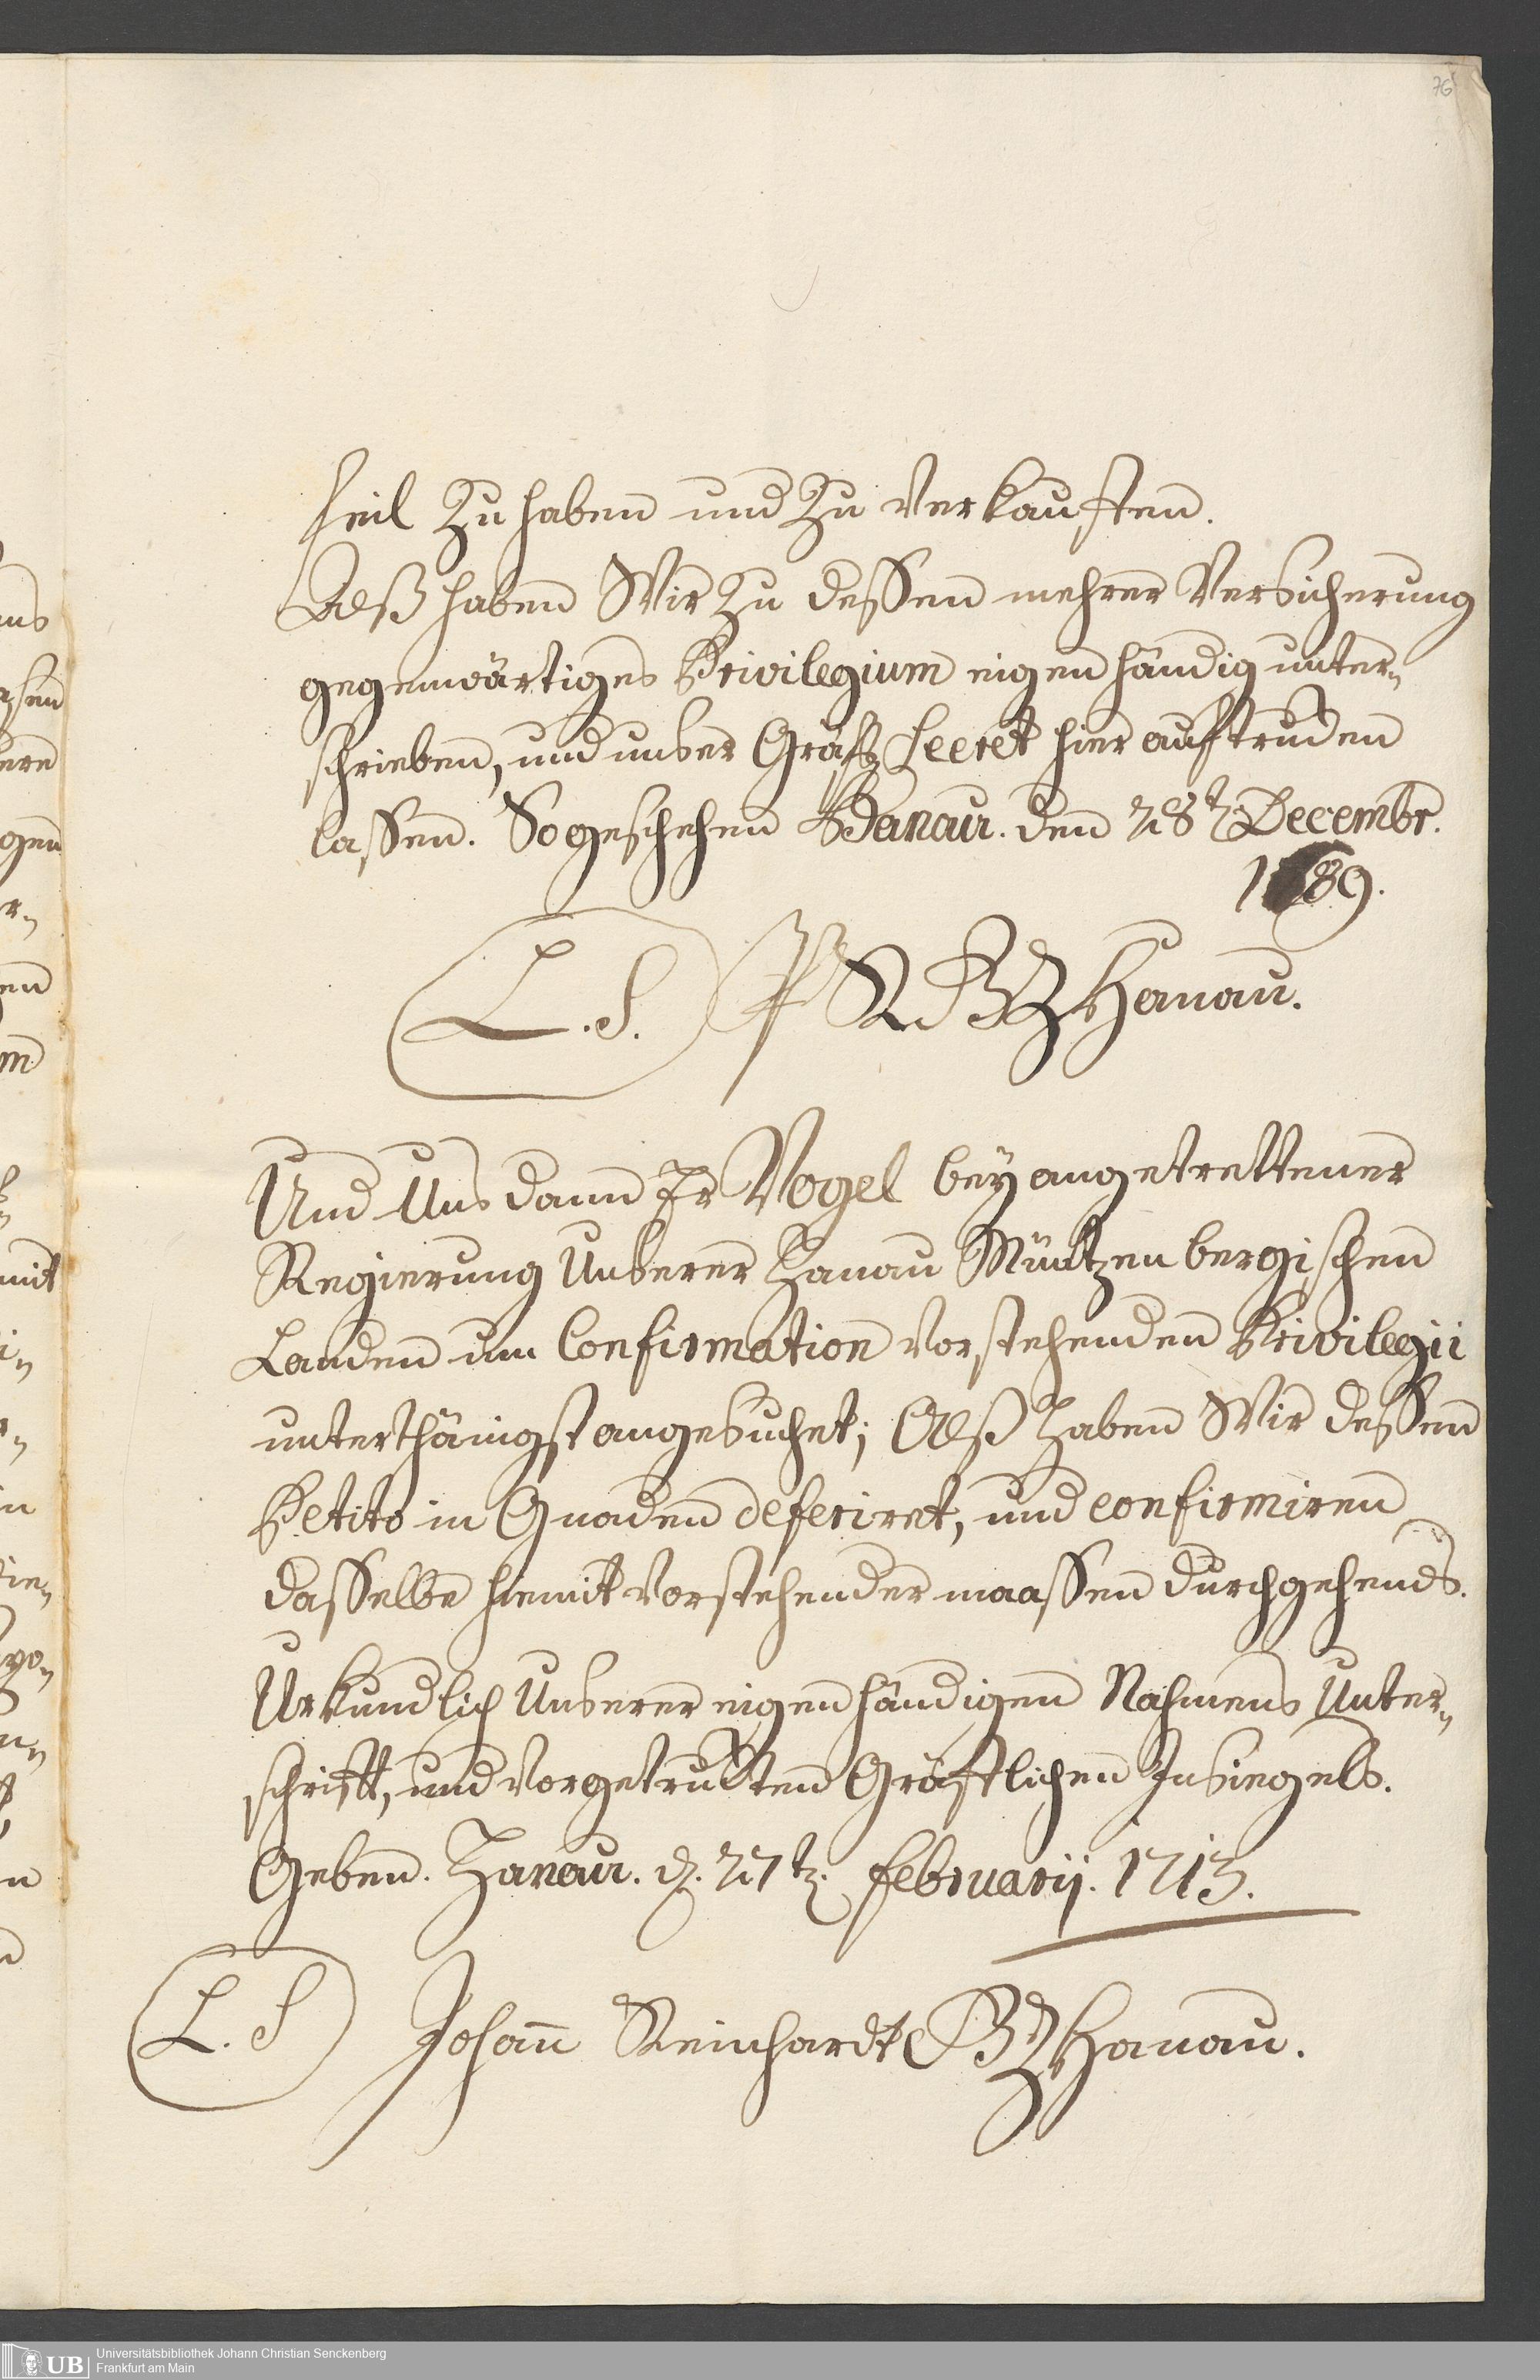 76
feil zu haben und zu verkauffen.
Alß haben Wir zu dessen mehrer Versicherung
gegenwärtiges Privilegium eigenhändig unter„
schrieben, und unser Gräfl. Secret hier auftrucken
lassen. So geschehen Hanau. den 28t Decembr.
1689.
L. S. P R G Z Hanau.
Und Uns dann Er Vogel bey angetrettener
Regierung Unserer Hanau Müntzenbergischen
Landen um Confirmation vorstehenden Privilegii
unterthänigst angesuchet; Alß haben Wir dessen
Petito in Gnaden deferiret, und confirmiren
dasselbe hiemit vorstehender maassen durchgehends.
Urkundlich Unserer eigenhändigen Nahmens Unter„
schrifft, und vorgetruckten Gräfflichen Insiegels.
Geben. Hanau. d. 27t. Februarij. 1713.
L. S Johann Reinhardt G Z Hanau.
UB Universitätsbibliothek Johann Christian Senckenberg
Frankfurt am Main